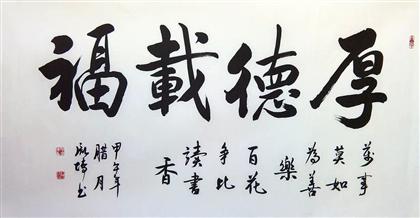 厚德載福
萬事
莫如
為善
樂
百花
争比
讀書
香
甲午年
腊月